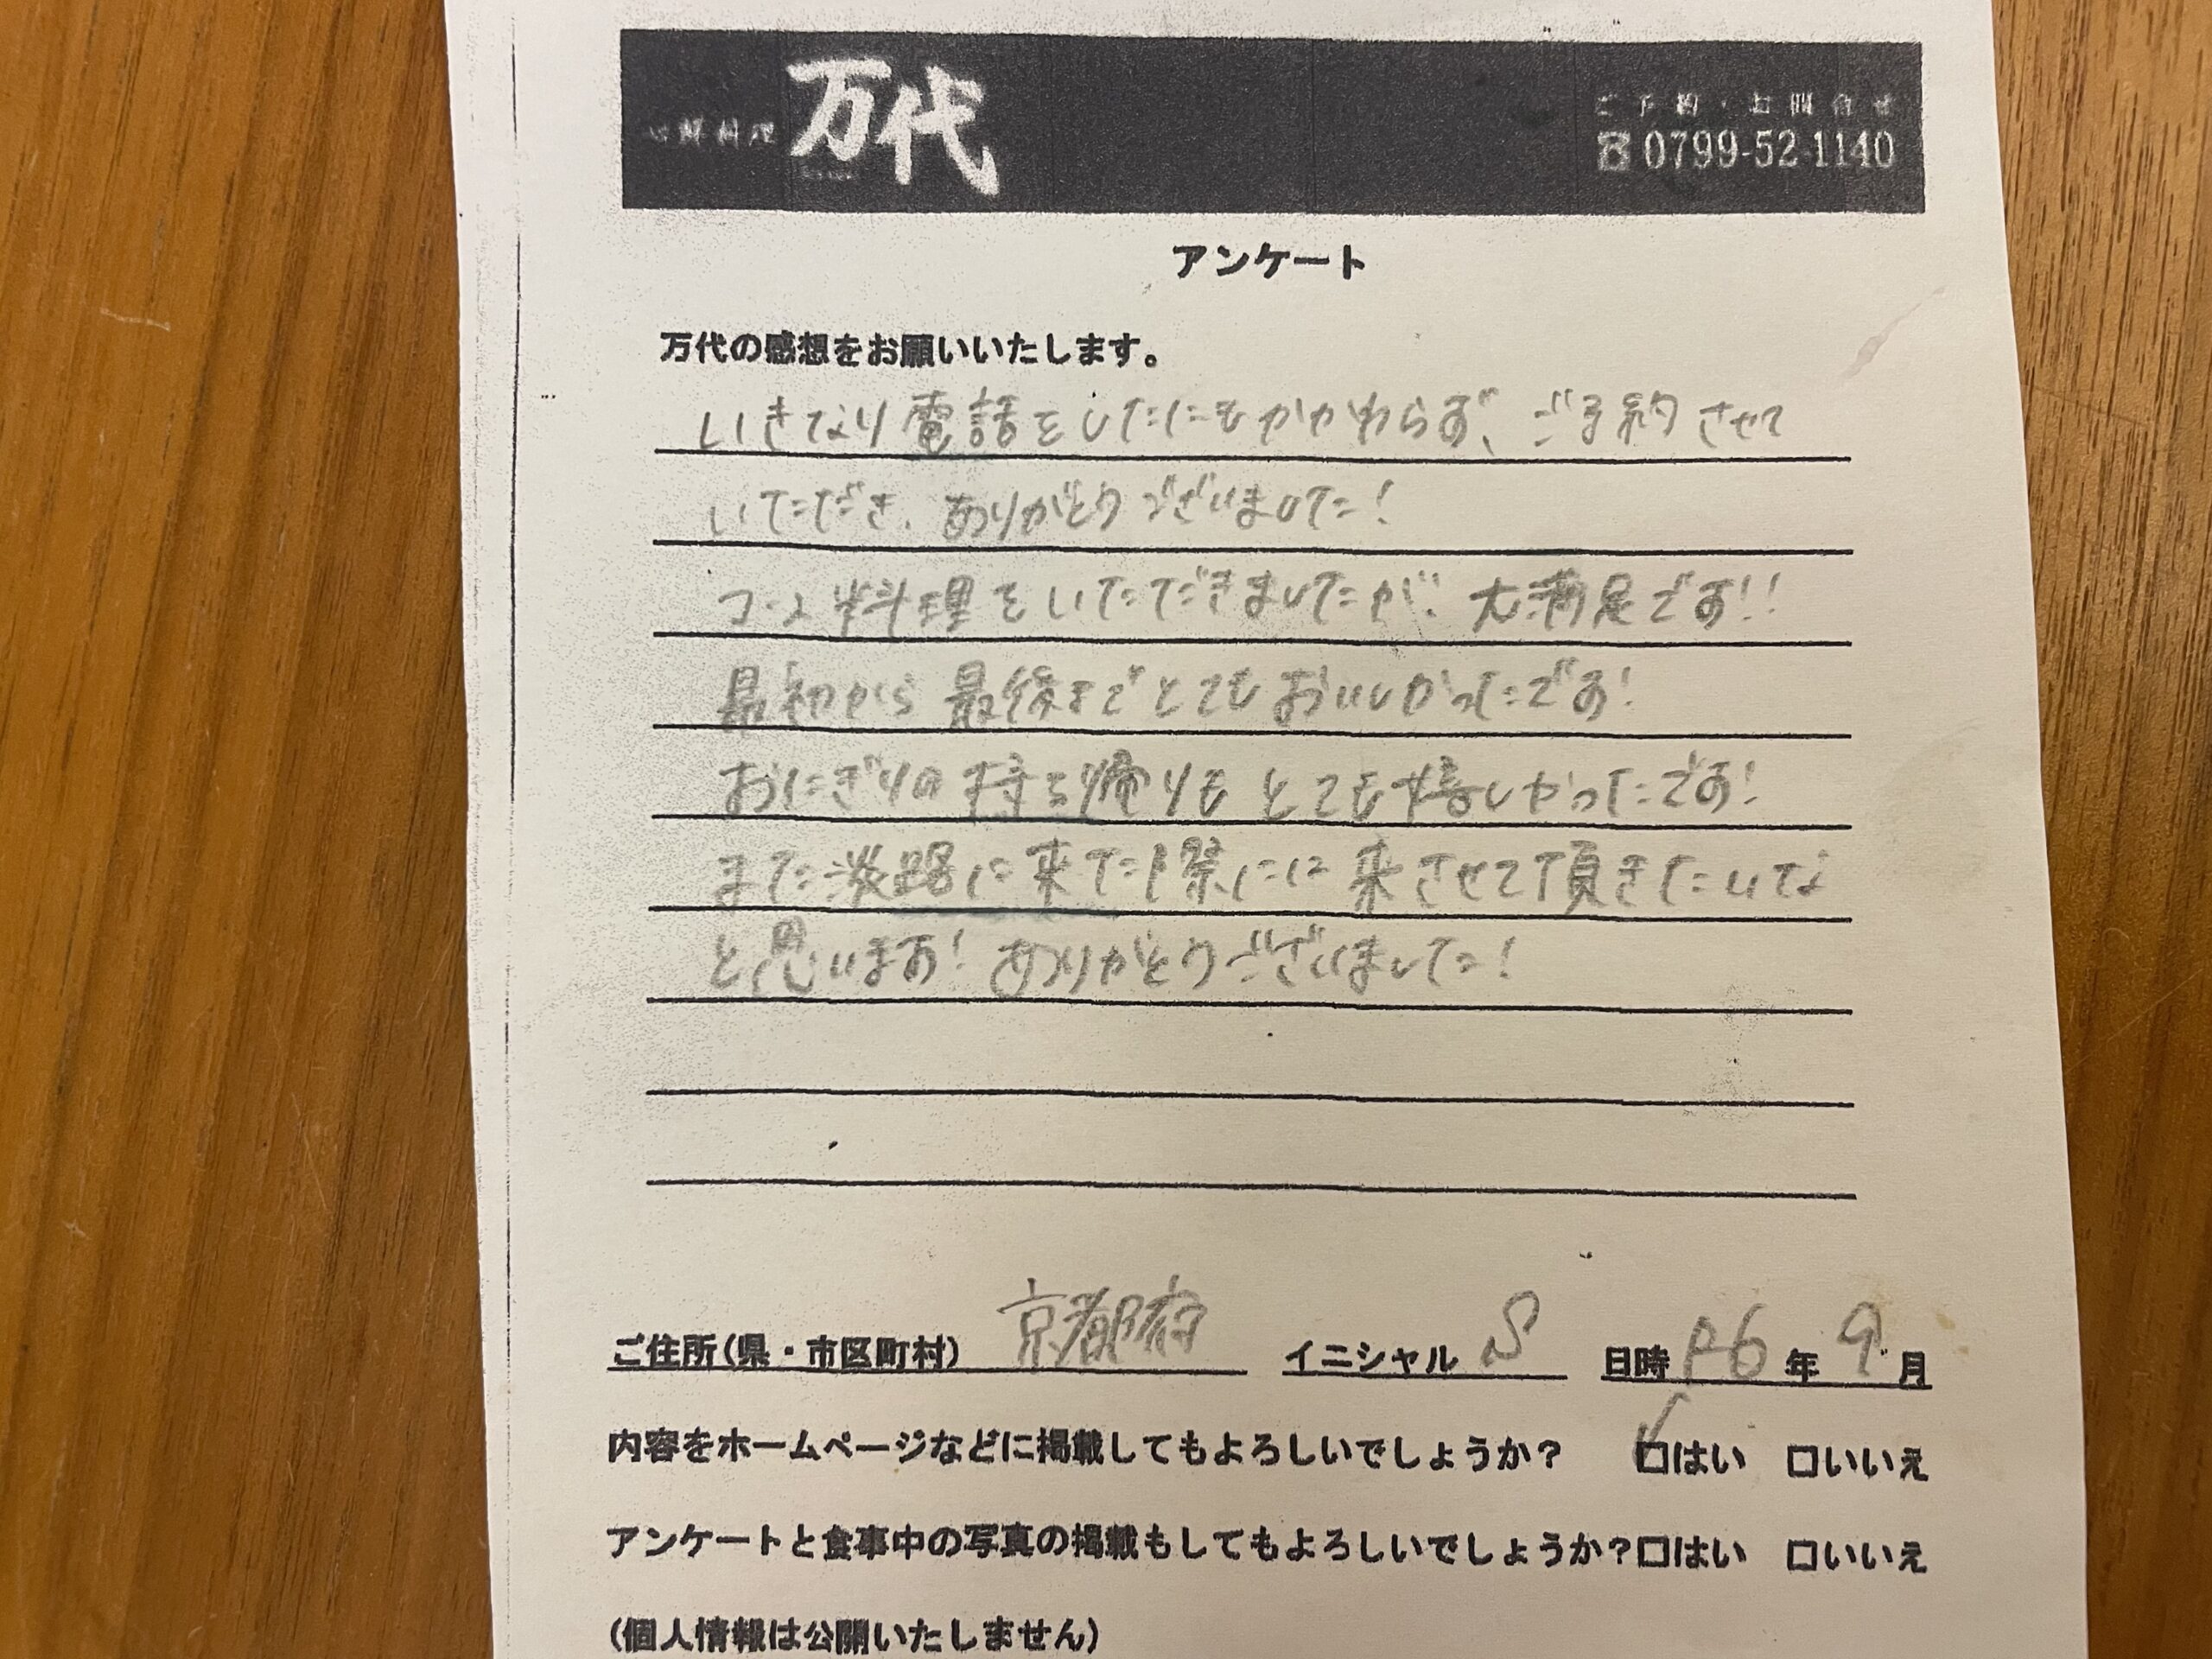 海鮮料理 万代
ご予約・お問合せ
☎0799-52-1140
アンケート
万代の感想をお願いいたします。
いきなり電話をしたにもかかわらず、ご予約させて
いただき、ありがとうございました!
コース料理をいただきましたが、大満足です!!
最初から最後までとてもおいしかったです!
おにぎりの持ち帰りもとても嬉しかったです!
また淡路に来た際には来させて頂きたいな
と思います!ありがとうございました!
ご住所(県・市区町村) 京都府 イニシャル S 日時 R6 年 9 月
内容をホームページなどに掲載してもよろしいでしょうか? ☑はい □いいえ
アンケートと食事中の写真の掲載もしてもよろしいでしょうか?□はい □いいえ
(個人情報は公開いたしません)